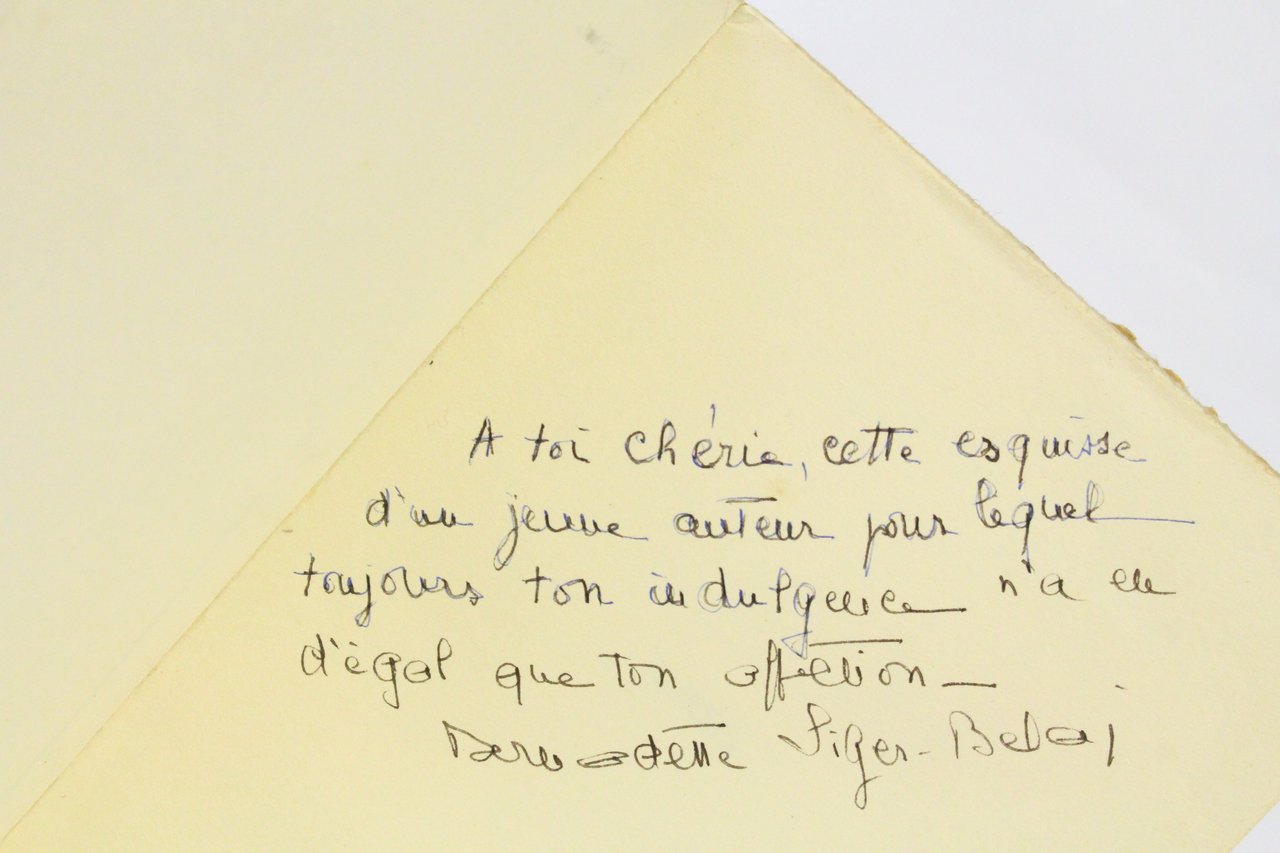 A toi chérie, cette esquisse
d'un jeune auteur pour lequel
toujours ton indulgence n'a eu
d'égal que ton affection —
Bernadette Siger-